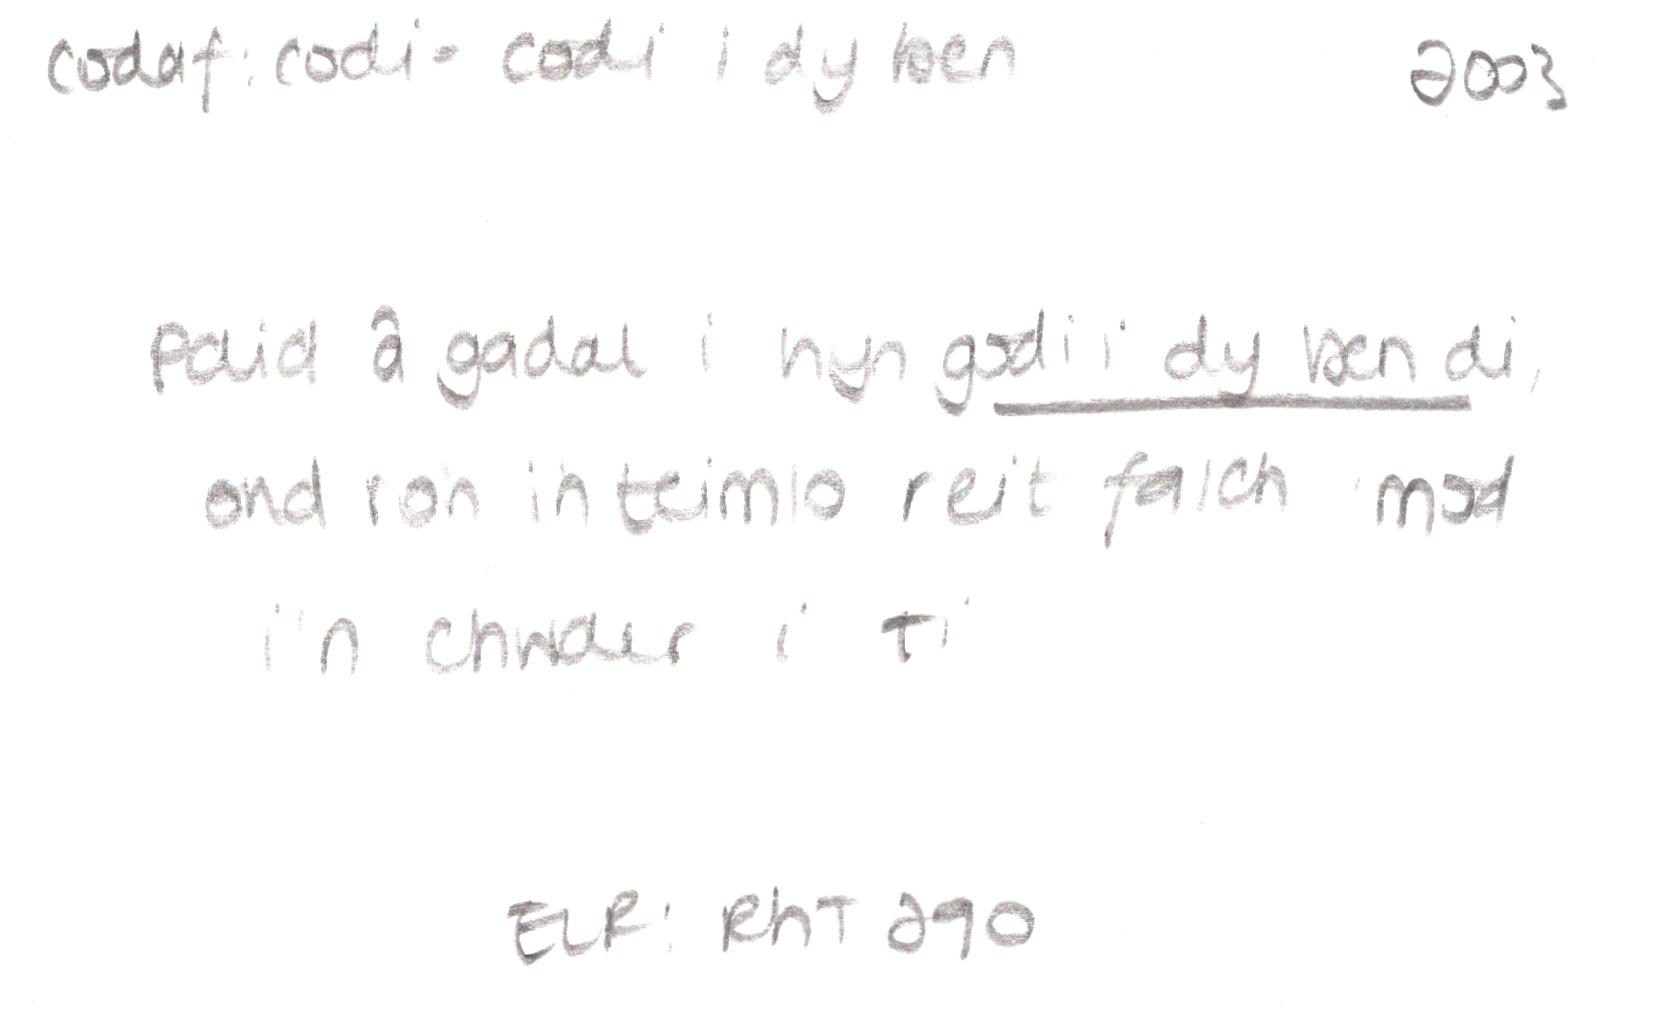 codaf: codi - codi i dy ben 2003
Paid â gadal i hyn godi i dy ben di,
ond ron in teimlo reit falch mod
i'n chwaer i ti
ELR: RhT 290